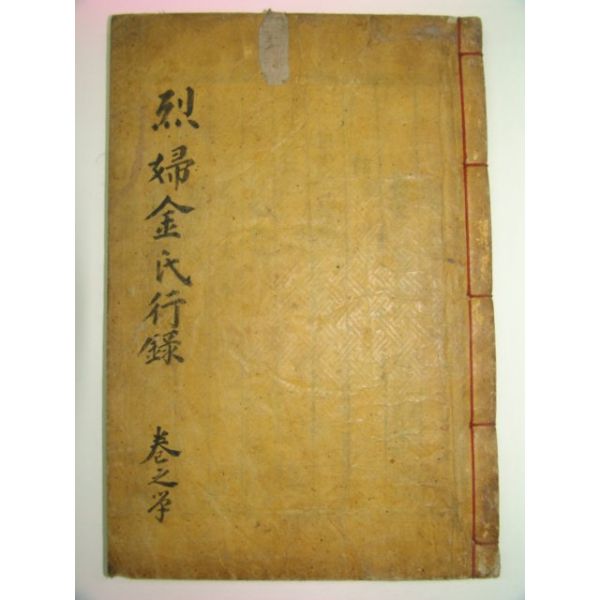 烈婦金氏行錄
卷之單